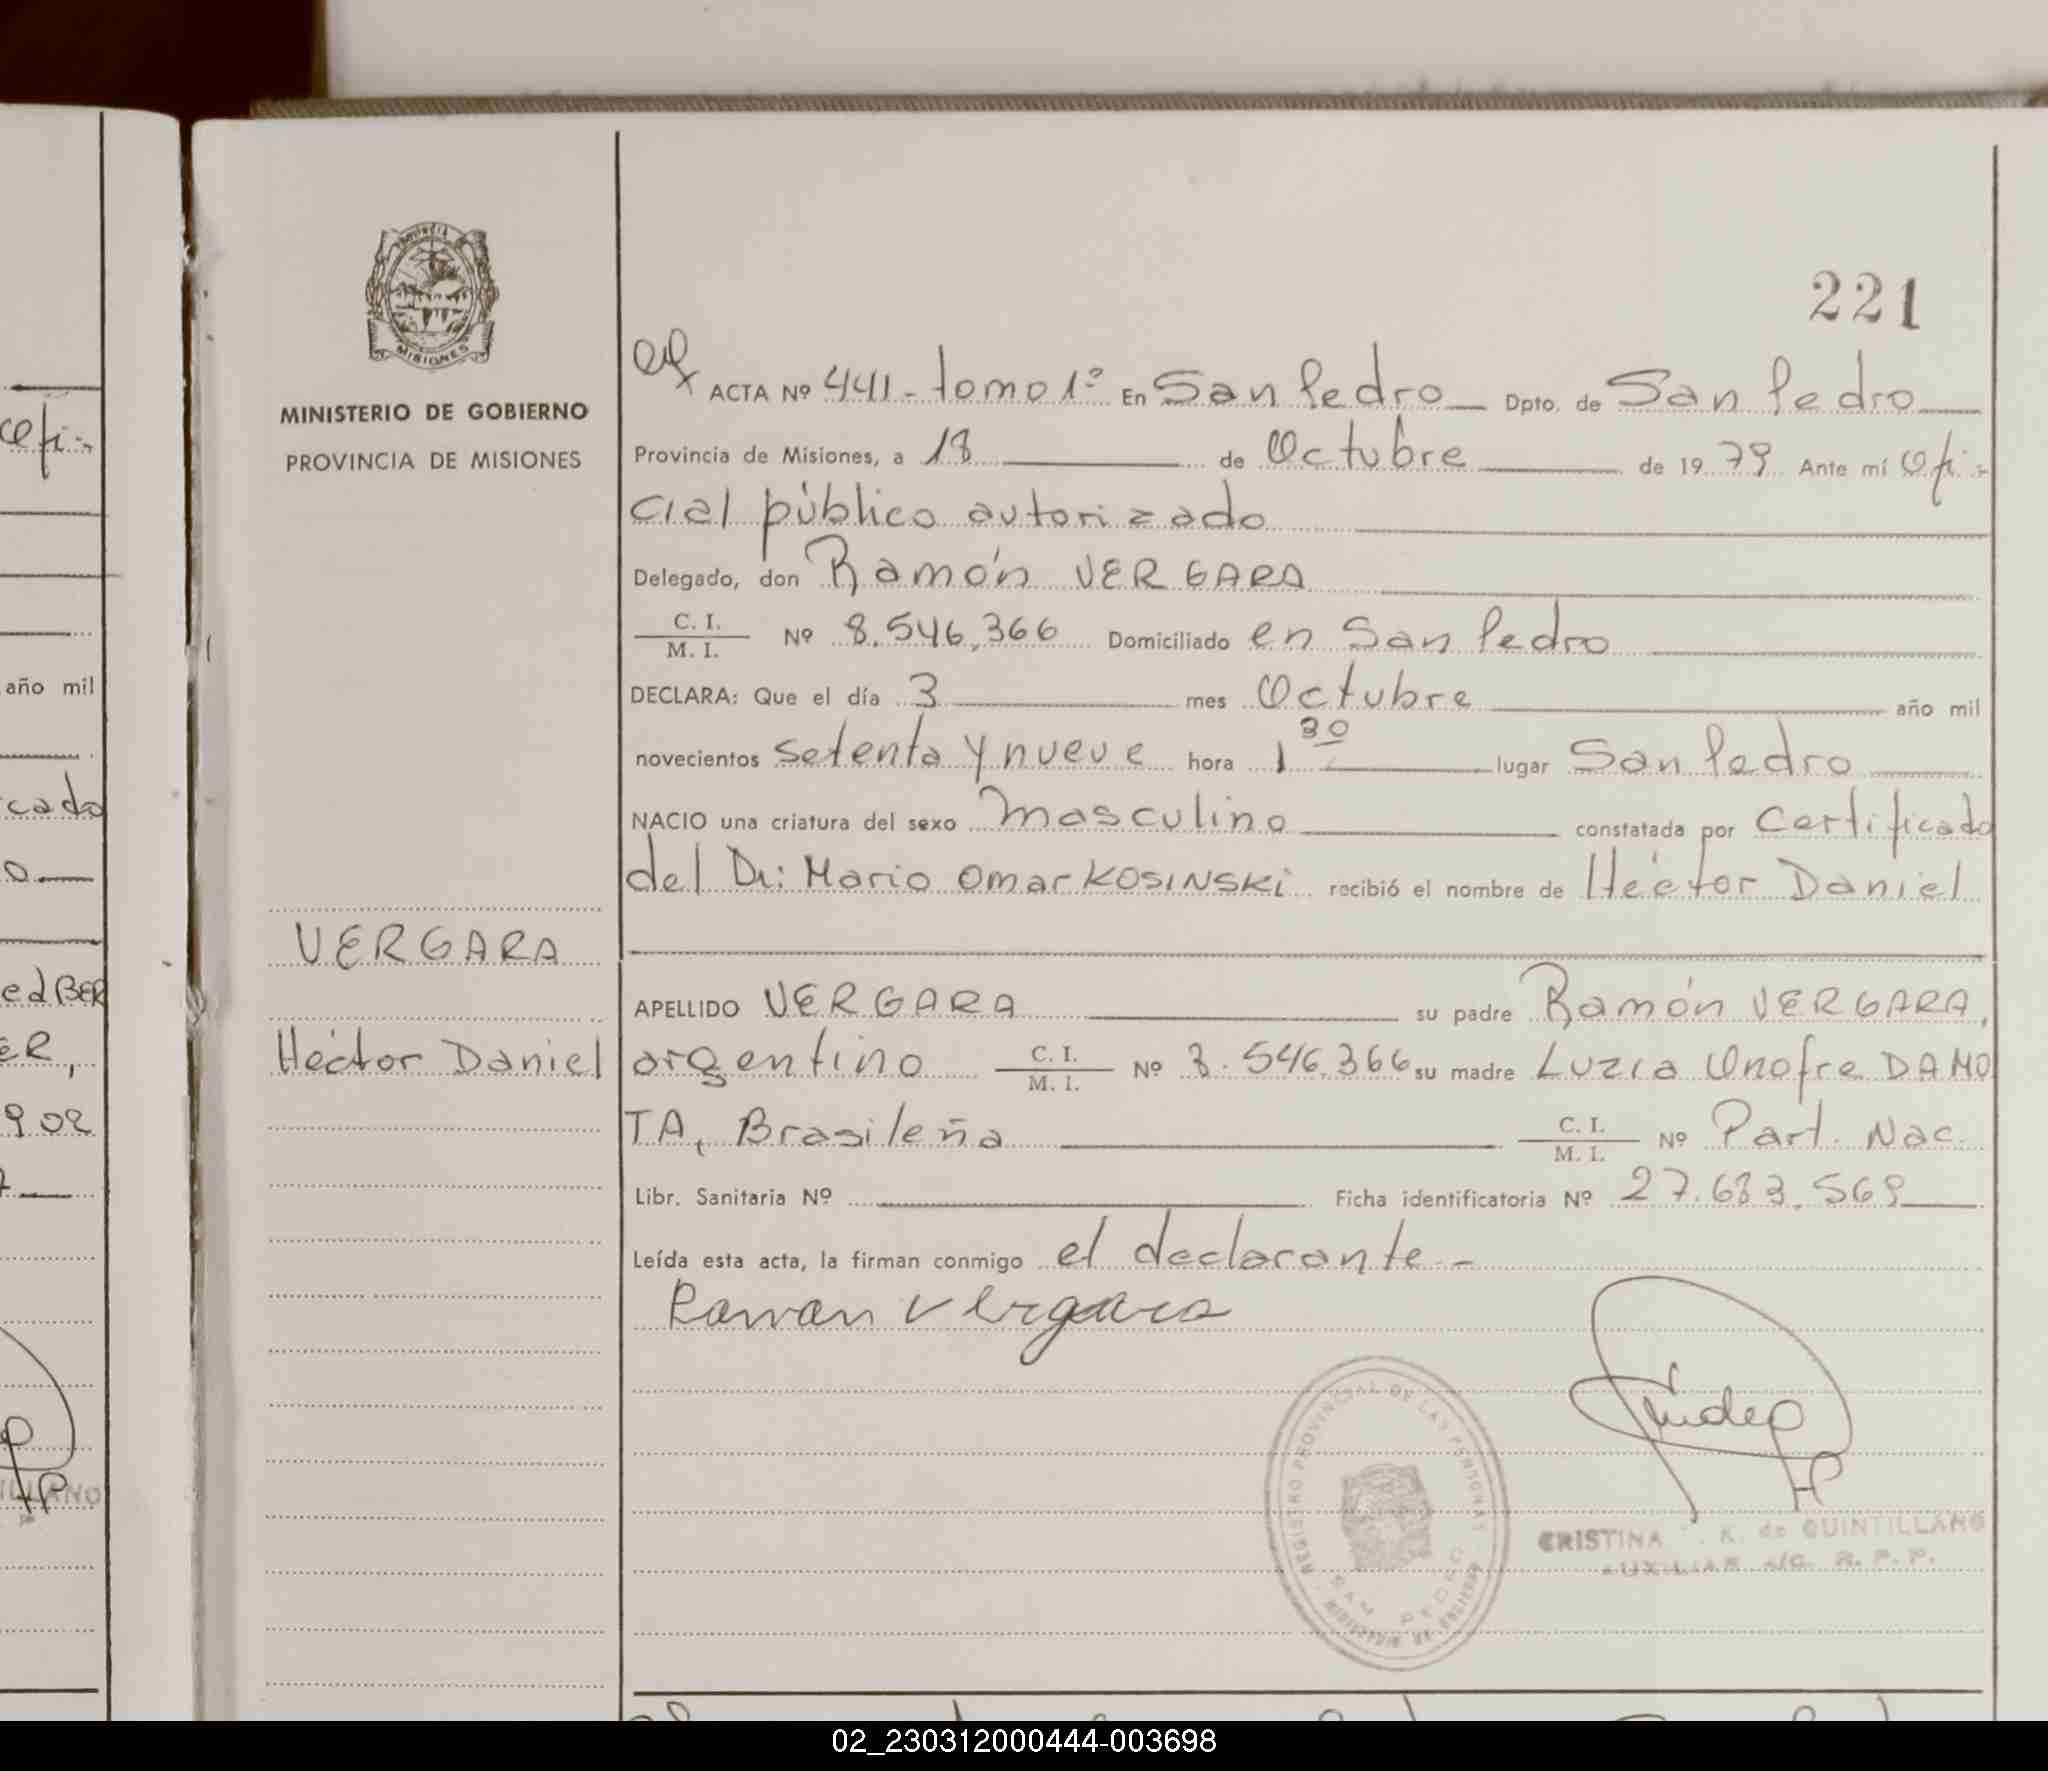 221
MISIONES
MINISTERIO DE GOBIERNO
PROVINCIA DE MISIONES
VERGARA
Héctor Daniel
ACTA Nº 441 - tomo 1º En San Pedro Dpto. de San Pedro
Provincia de Misiones, a 18 de Octubre de 1979 Ante mí Ofi-
cial público autorizado
Delegado, don Ramón VERGARA
C. I. / M. I. Nº 8.546.366 Domiciliado en San Pedro
DECLARA: Que el día 3 mes Octubre año mil
novecientos setenta y nueve hora 1 30 lugar San Pedro
NACIO una criatura del sexo masculino constatada por Certificado
del Dr: Mario Omar KOSINSKi recibió el nombre de Héctor Daniel
APELLIDO VERGARA su padre Ramón VERGARA,
argentino C. I. / M. I. Nº 8.546.366 su madre Luzia Onofre DAMO
TA, Brasileña C. I. / M. I. Nº Part. Nac.
Libr. Sanitaria Nº Ficha identificatoria Nº 27.683.569
Leída esta acta, la firman conmigo el declarante -
Ramon Vergara
REGISTRO PROVINCIAL DE LAS PERSONAS
SAN PEDRO
CRISTINA K. de QUINTILLANO
AUXILIAR A/C. R. P. P.
Ofi-
año mil
cado
ed BER
ER,
902
02_230312000444-003698